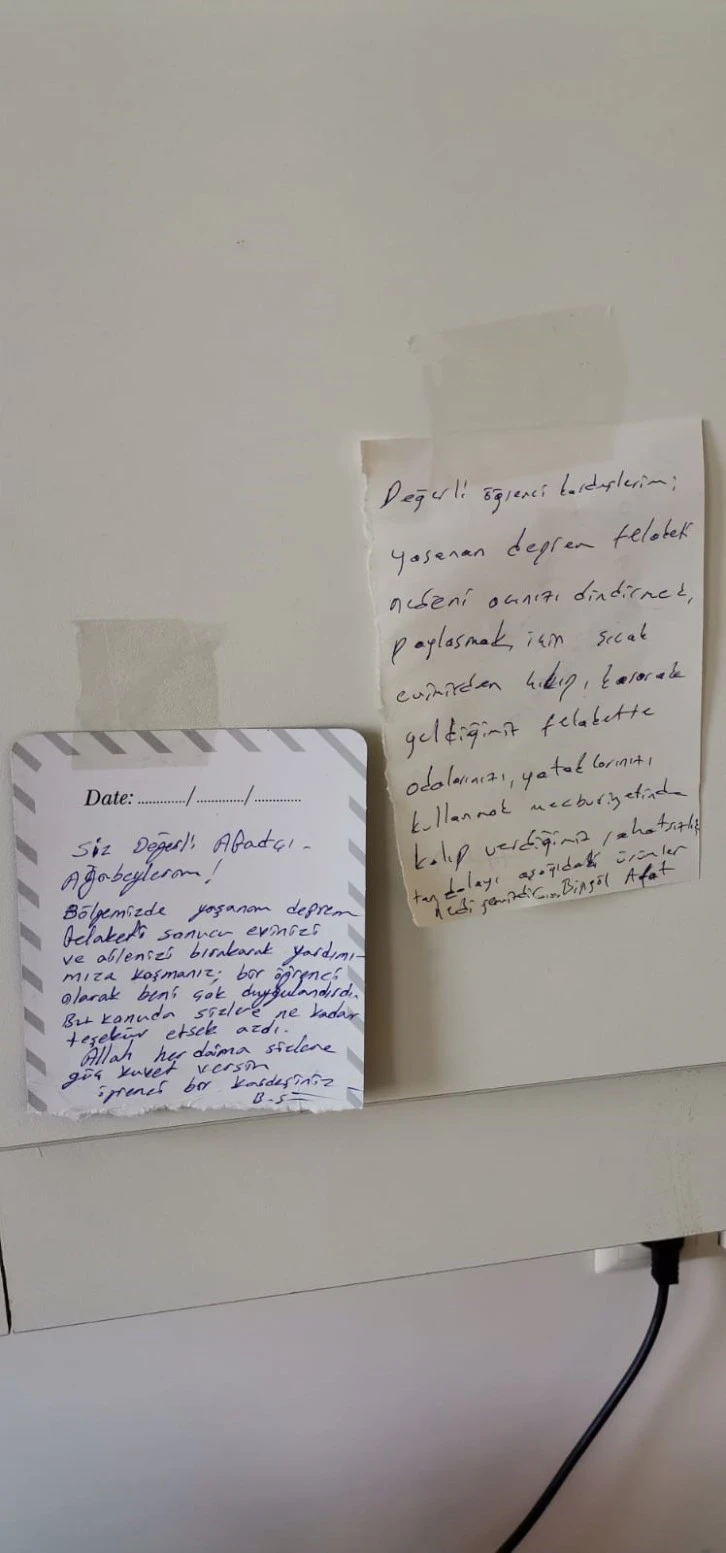 Date: ............/............/............
Siz Değerli Afadçı -
Ağabeylerim!
Bölgemizde yaşanan deprem
felaketi sonucu evinizi
ve ailenizi bırakarak yardımı-
mıza koşmanız; bir öğrenci
olarak beni çok duygulandırdı.
Bu konuda sizlere ne kadar
teşekür etsek azdı.
Allah her daima sizlere
güç kuvet versin
öğrenci bir kardeşiniz
B.S
Değerli öğrenci kardeşlerim;
yaşanan deprem felaket
nedeni acınızı dindirmek,
paylaşmak için sıcak
evimizden kalkıp, koşarak
geldiğimiz felakette
odalarınızı, yataklarınızı
kullanmak mecburiyetinde
kalıp verdiğimiz rahatsızlık
tan dolayı aşağıdaki ürünler
hediyemizdir... Bingöl Afat